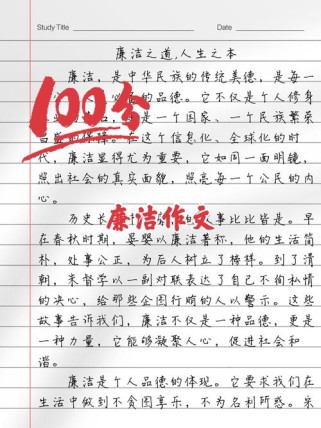 Study Title Date
廉洁之道,人生之本
廉洁，是中华民族的传统美德，是每一
的品德。它不仅是个人修身
是一个国家、一个民族繁荣
在这个信息化、全球化的时
代，廉洁显得尤为重要，它如同一面明镜，
照出社会的真实面貌，照亮每一个公民的内
心。
100分
历史长 人事比比皆是。早
廉洁作文
在春秋时期，晏婴以廉洁著称，他的生活简
朴，处事公正，为后人树立了榜样。到了清
朝，朱督学以一副对联表达了自己不徇私情
的决心，给那些企图行贿的人以警示。这些
故事告诉我们，廉洁不仅是一种品德，更是
一种力量，它能够凝聚人心，促进社会和
谐。
廉洁是个人品德的体现。它要求我们在
生活中做到不贪图享乐，不为名利所惑。来